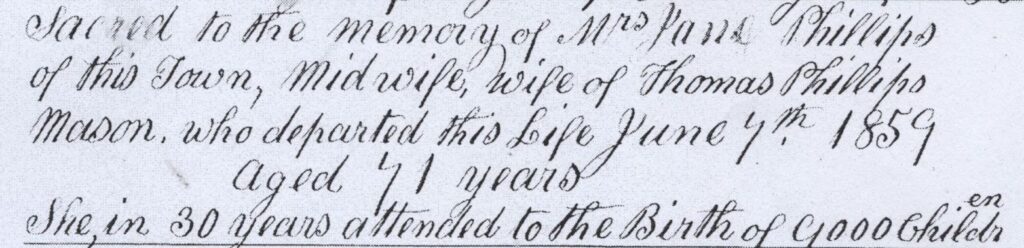 Sacred to the memory of Mrs Jane Phillips
of this Town, Midwife, wife of Thomas Phillips
Mason. who departed this Life June 7th. 1859
aged 71 years
She, in 30 years attended to the Birth of 9000 Children